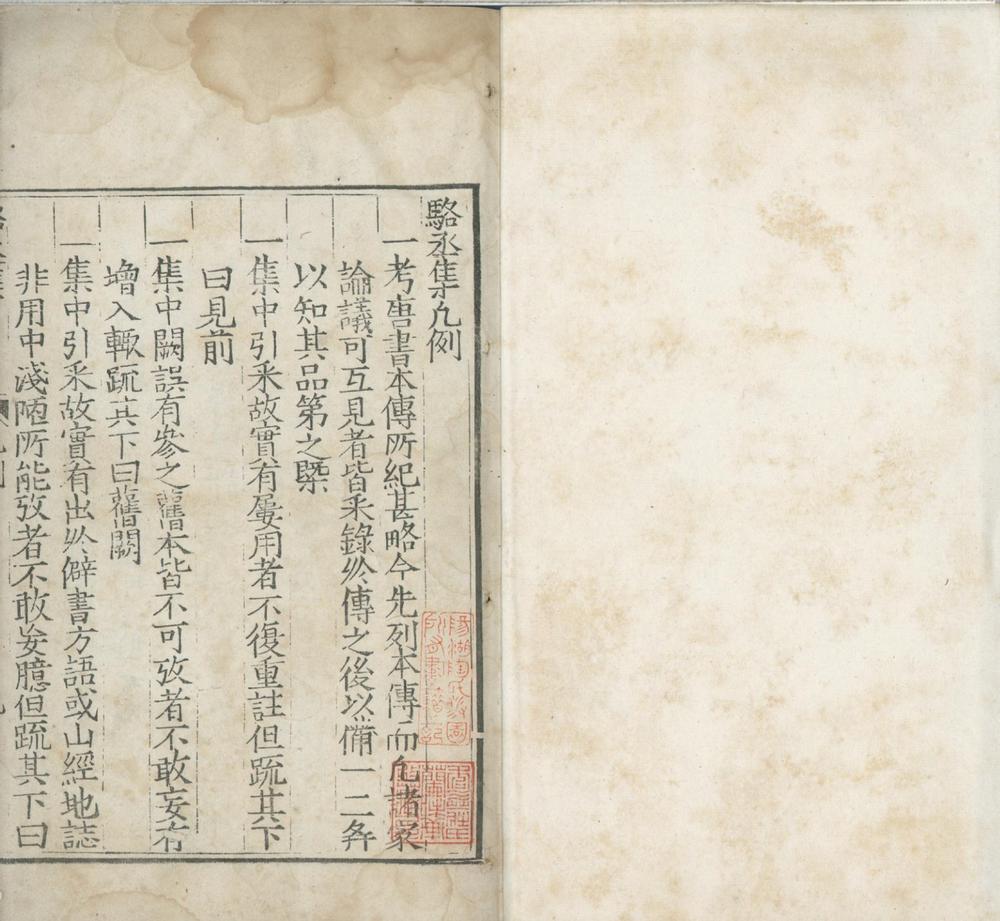 駱丞集凡例
一考唐書本傳所紀甚略今先列本傳而凡諸家
論議可互見者皆采錄於傳之後以備一二各
以知其品第之槩
一集中引采故實有屢用者不復重註但疏其下
曰見前
一集中闕誤有參之舊本皆不可攷者不敢妄有
增入輙疏其下曰舊闕
一集中引采故實有出於僻書方語或山經地誌
非用中淺陋所能攷者不敢妄臆但疏其下曰